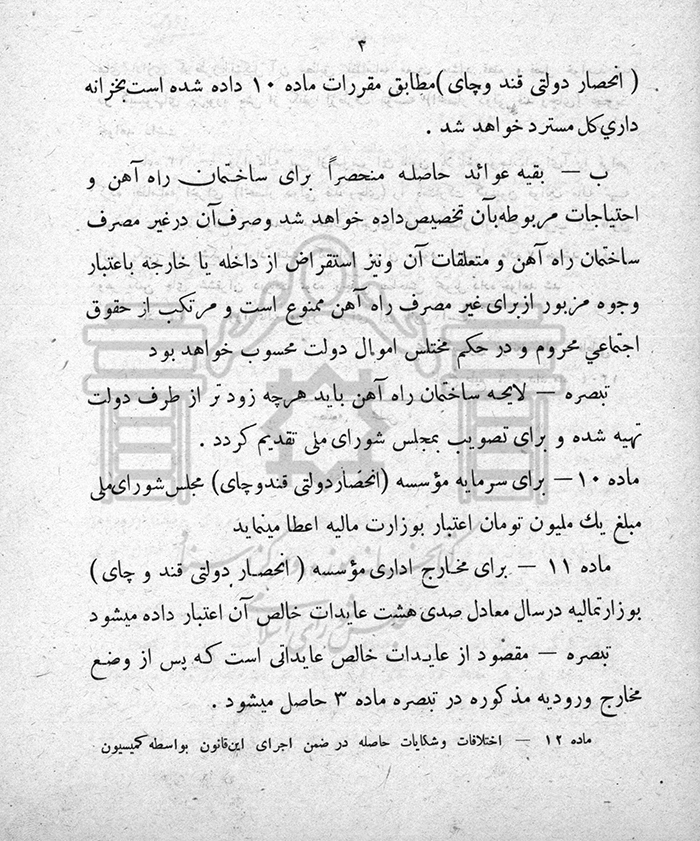 ۳
( انحصار دولتی قند وچای)مطابق مقررات ماده ۱۰ داده شده است بخزانه
داري كل مسترد خواهد شد .
ب — بقیه عوائد حاصله منحصراً برای ساختمان راه آهن و
احتیاجات مربوطه بآن تخصیص داده خواهد شد وصرف آن درغیر مصرف
ساختمان راه آهن و متعلقات آن ونیز استقراض از داخله یا خارجه باعتبار
وجوه مزبور ازبرای غیر مصرف راه آهن ممنوع است و مرتکب از حقوق
اجتماعي محروم و در حکم مختلس اموال دولت محسوب خواهد بود
تبصره — لایحه ساختمان راه آهن باید هرچه زود تر از طرف دولت
تهیه شده و برای تصویب بمجلس شورای ملی تقدیم کردد .
ماده ۱۰ — برای سرمایه مؤسسه (انحصاردولتی قندوچای) مجلس شورای ملی
مبلغ یك ملیون تومان اعتبار بوزارت مالیه اعطا مینماید
ماده ۱۱ — برای مخارج اداری مؤسسه ( انحصار دولتی قند و چای )
بوزارتمالیه درسال معادل صدی هشت عایدات خالص آن اعتبار داده میشود
تبصره — مقصود از عایدات خالص عایداتی است که پس از وضع
مخارج ورودیه مذکوره در تبصره ماده ۳ حاصل میشود .
ماده ۱۲ — اختلافات وشکایات حاصله در ضمن اجرای این قانون بواسطه کمیسیون